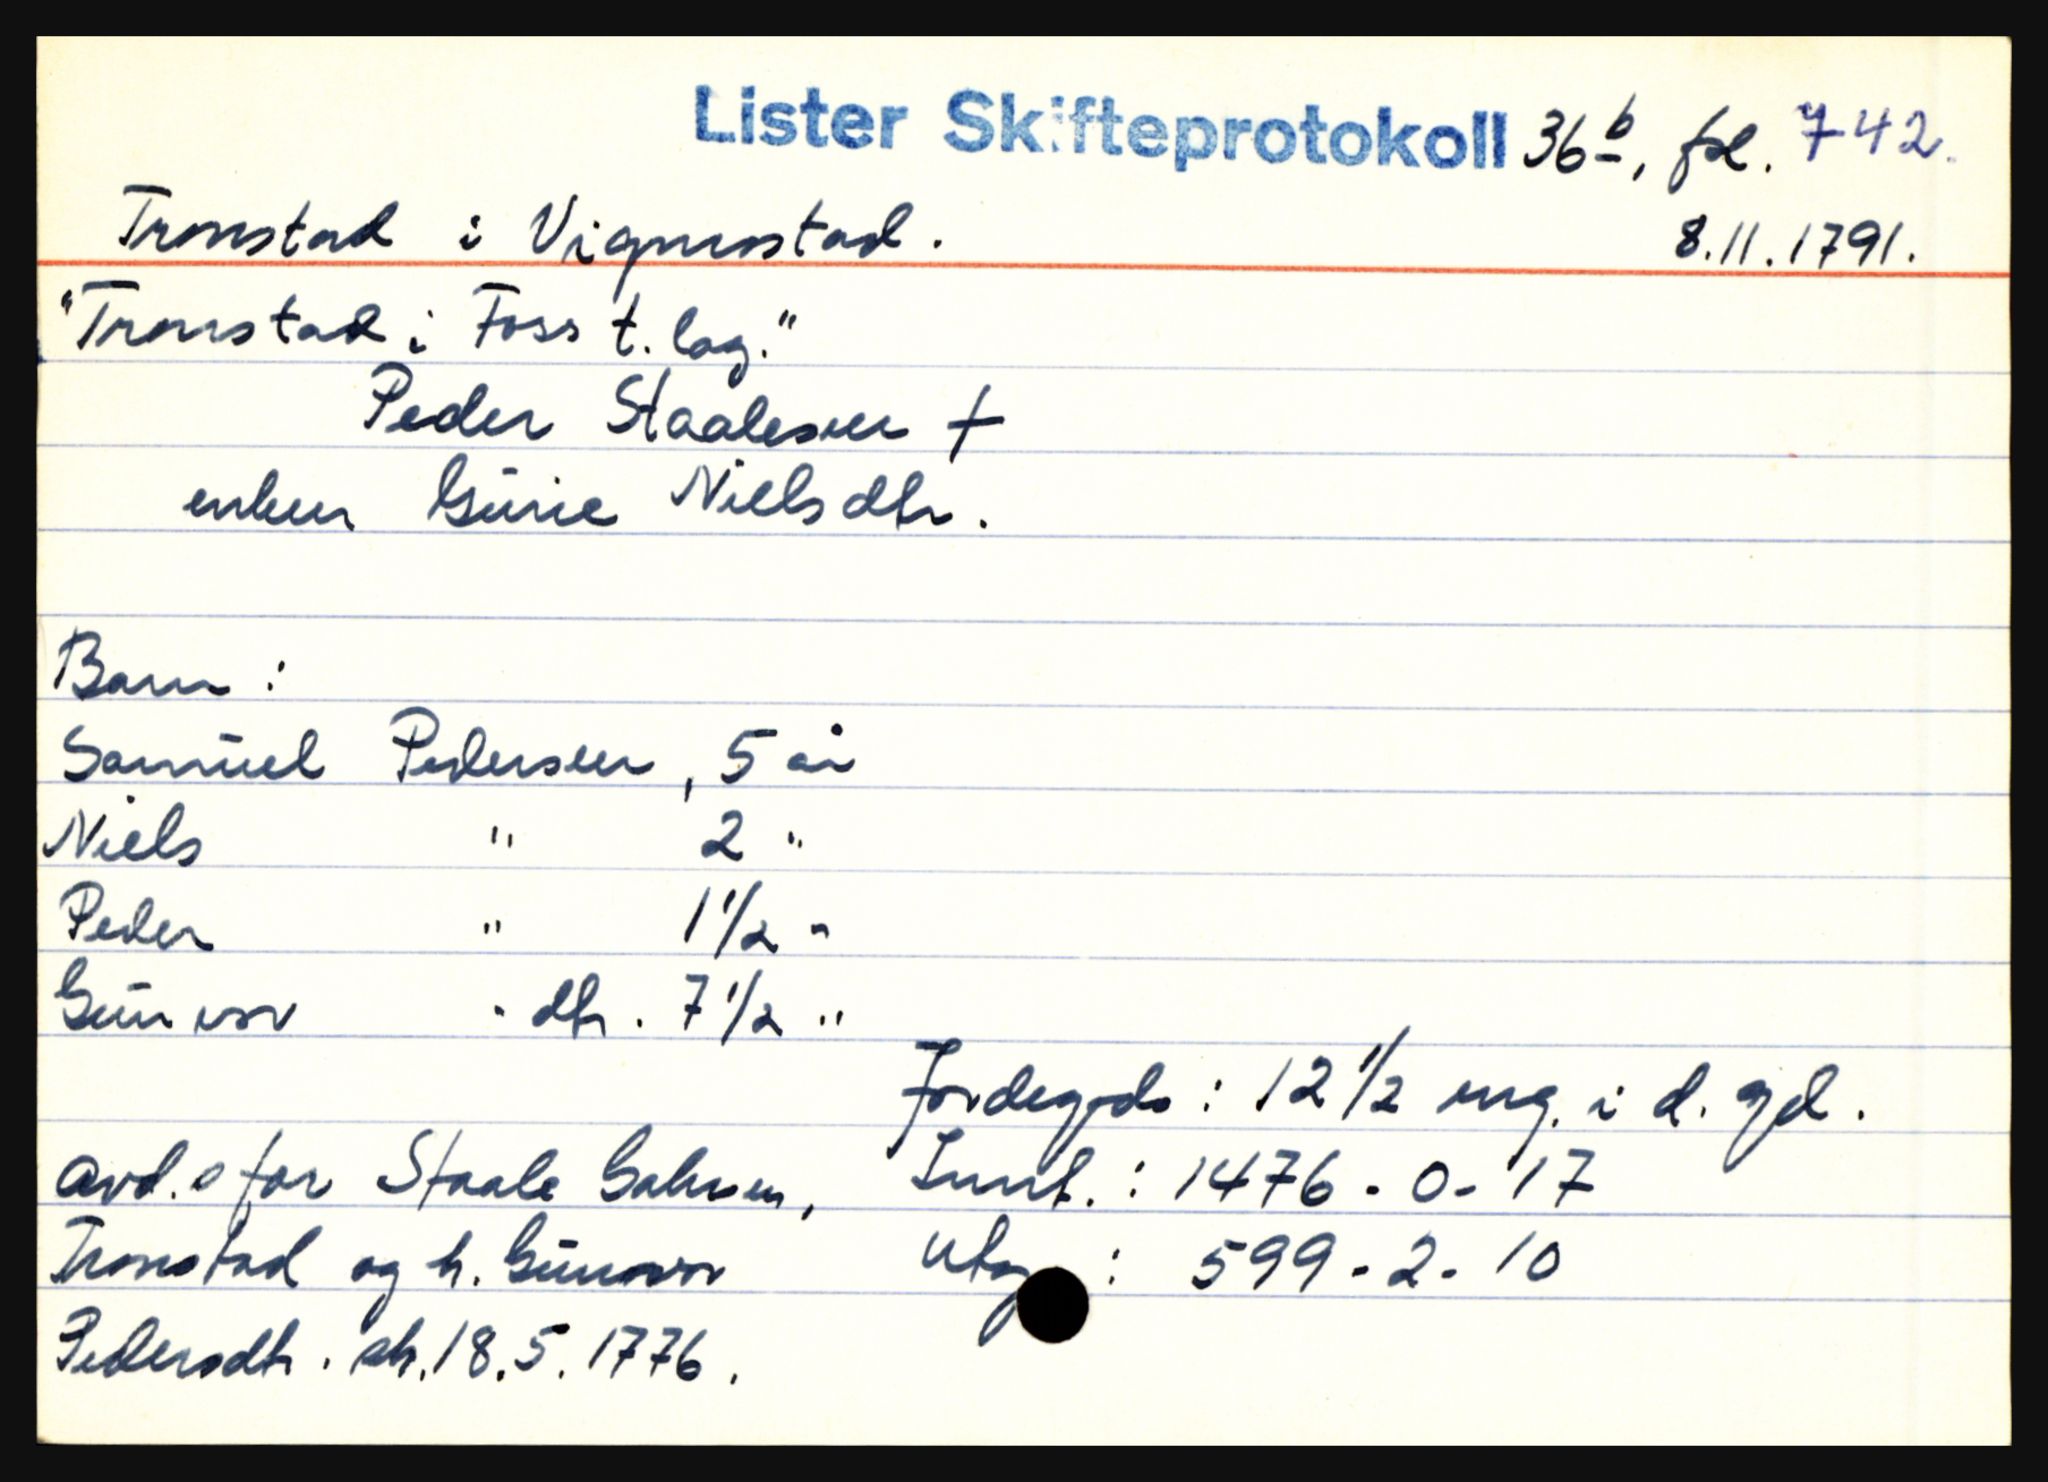 Lister Skifteprotokoll 36 b, fol. 742.
Tronstad i Vigmostad. 8.11.1791.
"Tronstad i Foss t. lag."
Peder Staalesen +
enken Gürie Nielsdtr.
Barn :
Samüel Pedersen, 5 år
Niels " 2 "
Peder " 1 1/2 "
Günvor " dtr. 7 1/2 "
Jordegods : 12 1/2 mg. i d. gd.
avd.s far Staale Salvesen, Innt. : 1476 - 0 - 17
Tronstad og h. Günvor Utg : 599 - 2 - 10
Pedersdtr. sk. 18.5.1776.